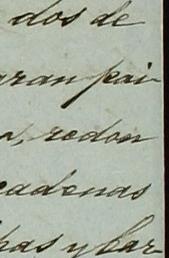 dos de
gran pai-
a, redon
cadenas
pas y bar-